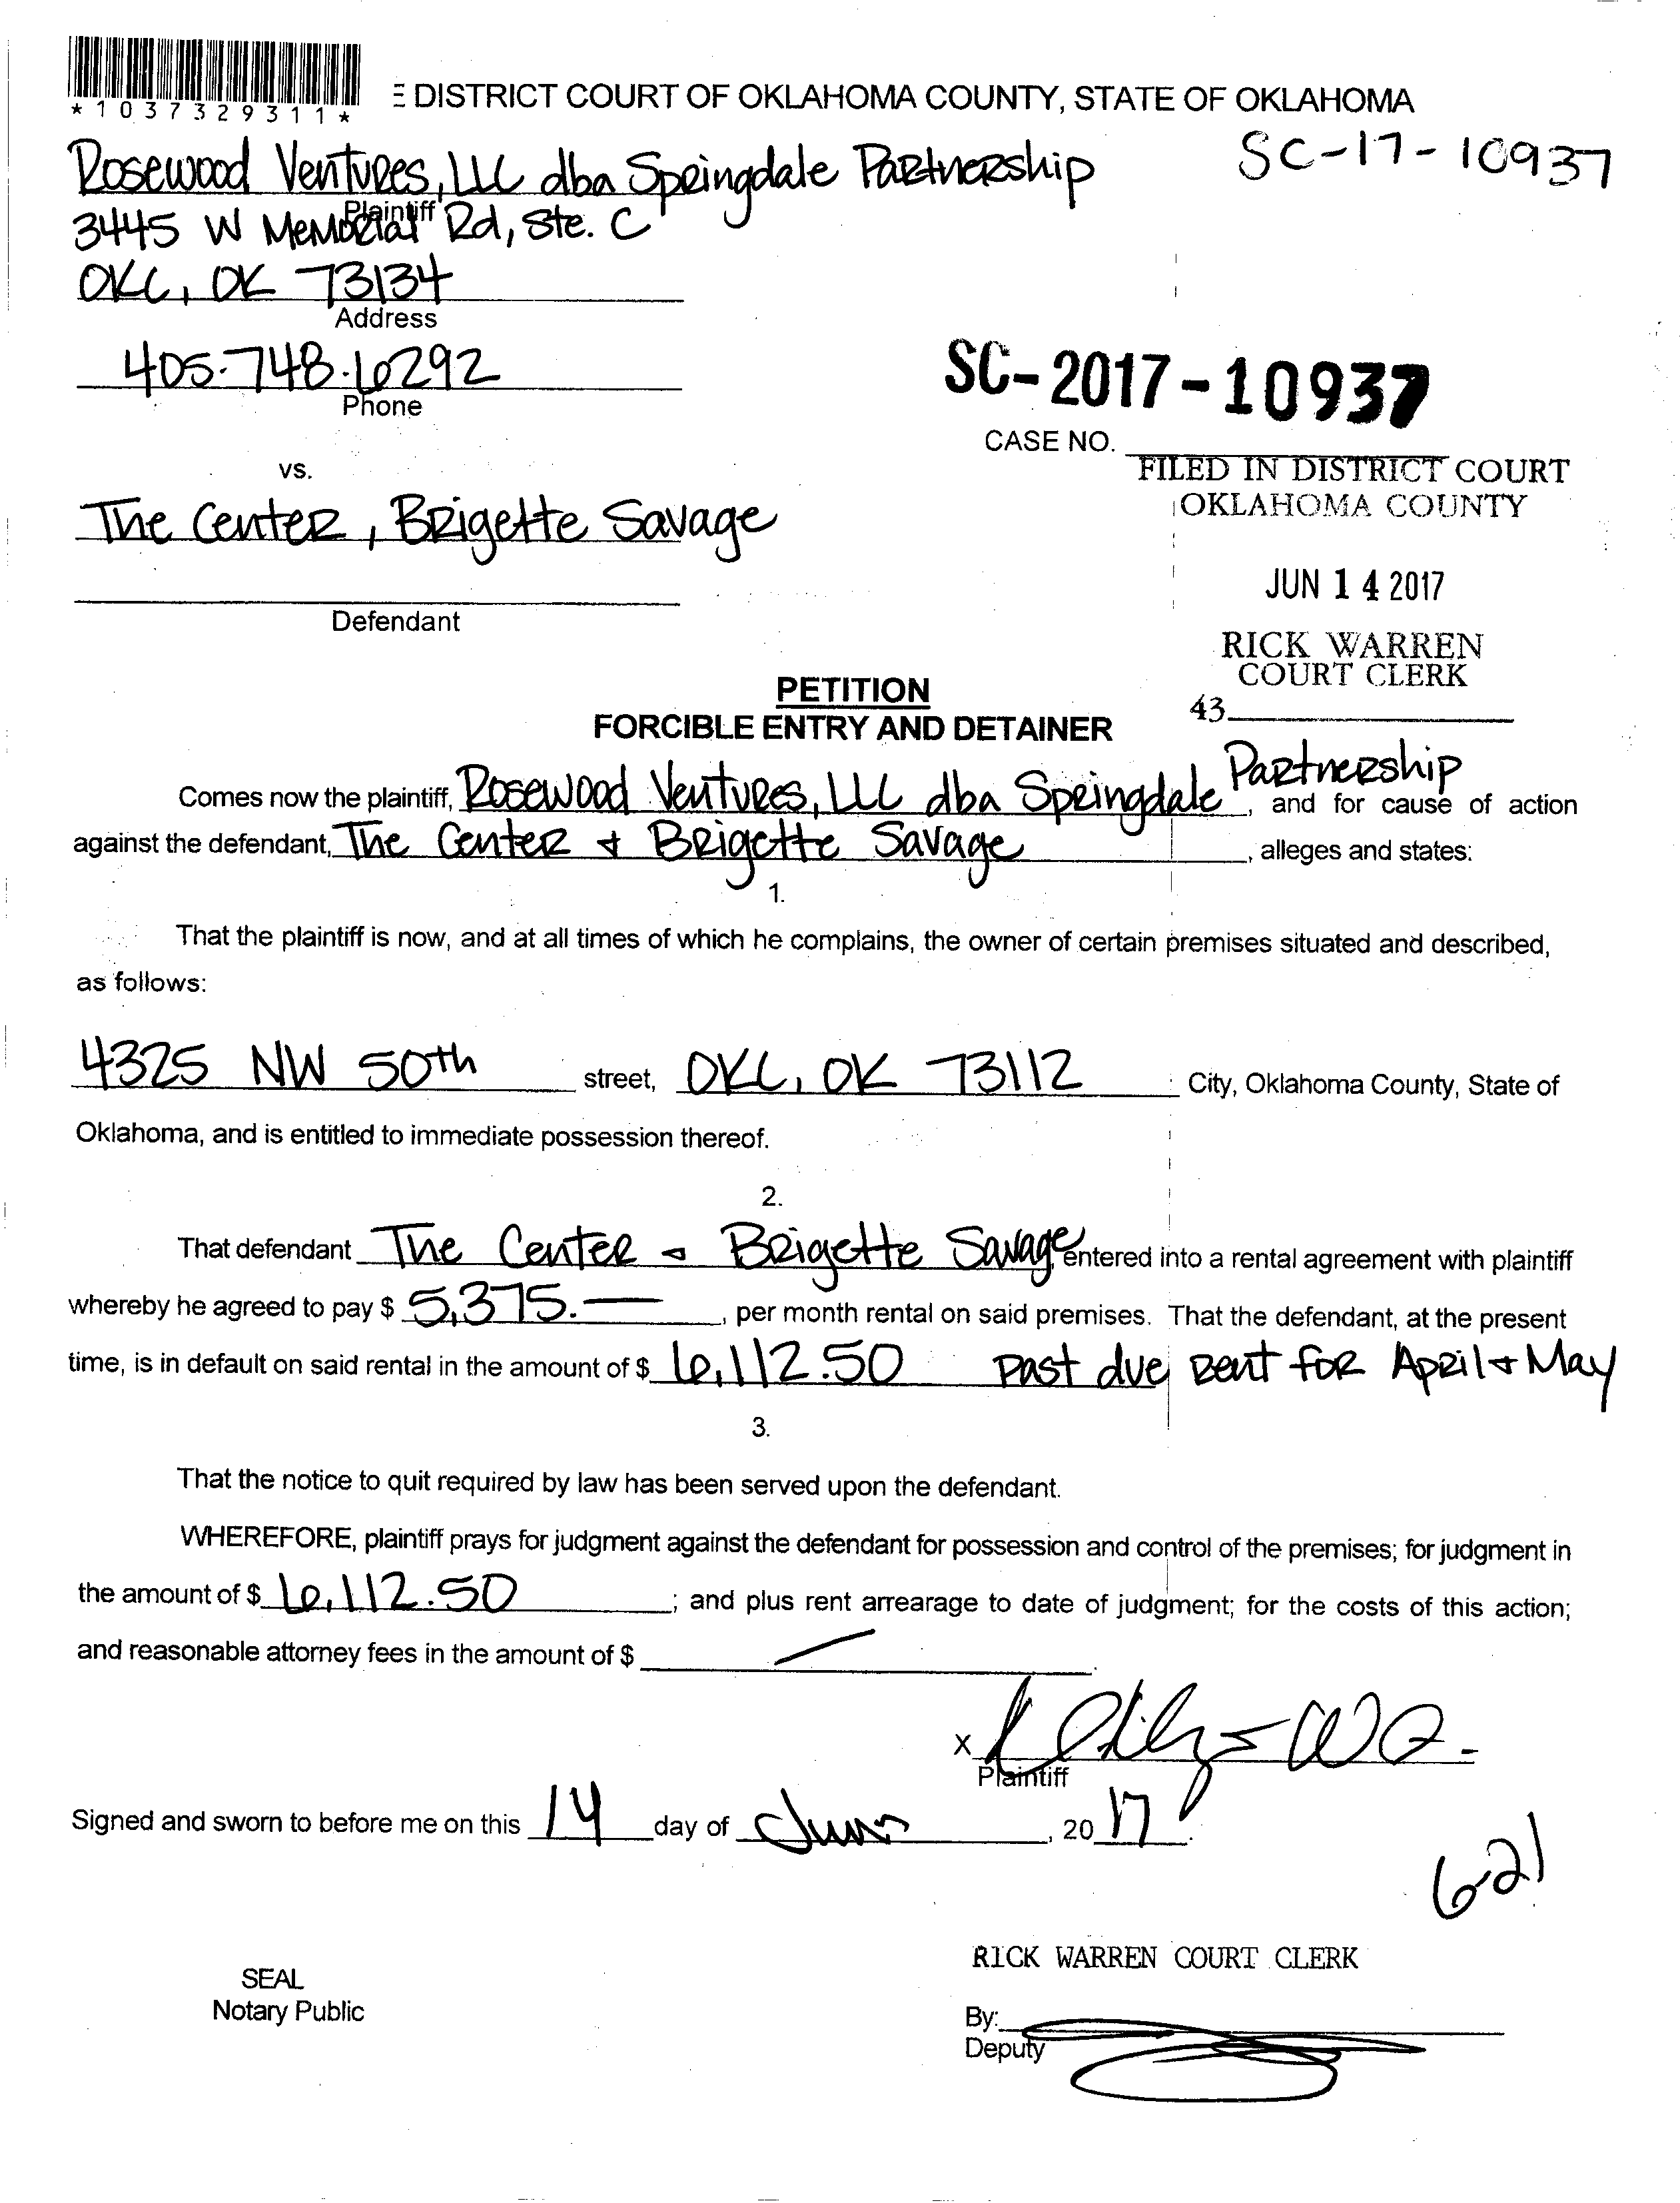 *1037329311*
E DISTRICT COURT OF OKLAHOMA COUNTY, STATE OF OKLAHOMA
SC-17-10937
Rosewood Ventures, LLC dba Springdale Partnership
Plaintiff
3445 W Memorial Rd, Ste. C
OKC, OK 73134
Address
405-748-6292
Phone
SC-2017-10937
CASE NO.
vs.
FILED IN DISTRICT COURT
OKLAHOMA COUNTY
The Center, Brigette Savage
JUN 14 2017
Defendant
RICK WARREN
COURT CLERK
43
PETITION
FORCIBLE ENTRY AND DETAINER
Comes now the plaintiff, Rosewood Ventures, LLC dba Springdale Partnership, and for cause of action
against the defendant, The Center + Brigette Savage, alleges and states:
1.
That the plaintiff is now, and at all times of which he complains, the owner of certain premises situated and described,
as follows:
4325 NW 50th street, OKC, OK 73112 City, Oklahoma County, State of
Oklahoma, and is entitled to immediate possession thereof.
2.
That defendant The Center + Brigette Savage entered into a rental agreement with plaintiff
whereby he agreed to pay $ 5,375.—, per month rental on said premises. That the defendant, at the present
time, is in default on said rental in the amount of $ 6,112.50 past due rent for April + May
3.
That the notice to quit required by law has been served upon the defendant.
WHEREFORE, plaintiff prays for judgment against the defendant for possession and control of the premises; for judgment in
the amount of $ 6,112.50; and plus rent arrearage to date of judgment; for the costs of this action;
and reasonable attorney fees in the amount of $ —.
X
Plaintiff
Signed and sworn to before me on this 14 day of June, 2017.
6-21
RICK WARREN COURT CLERK
SEAL
Notary Public
By:
Deputy